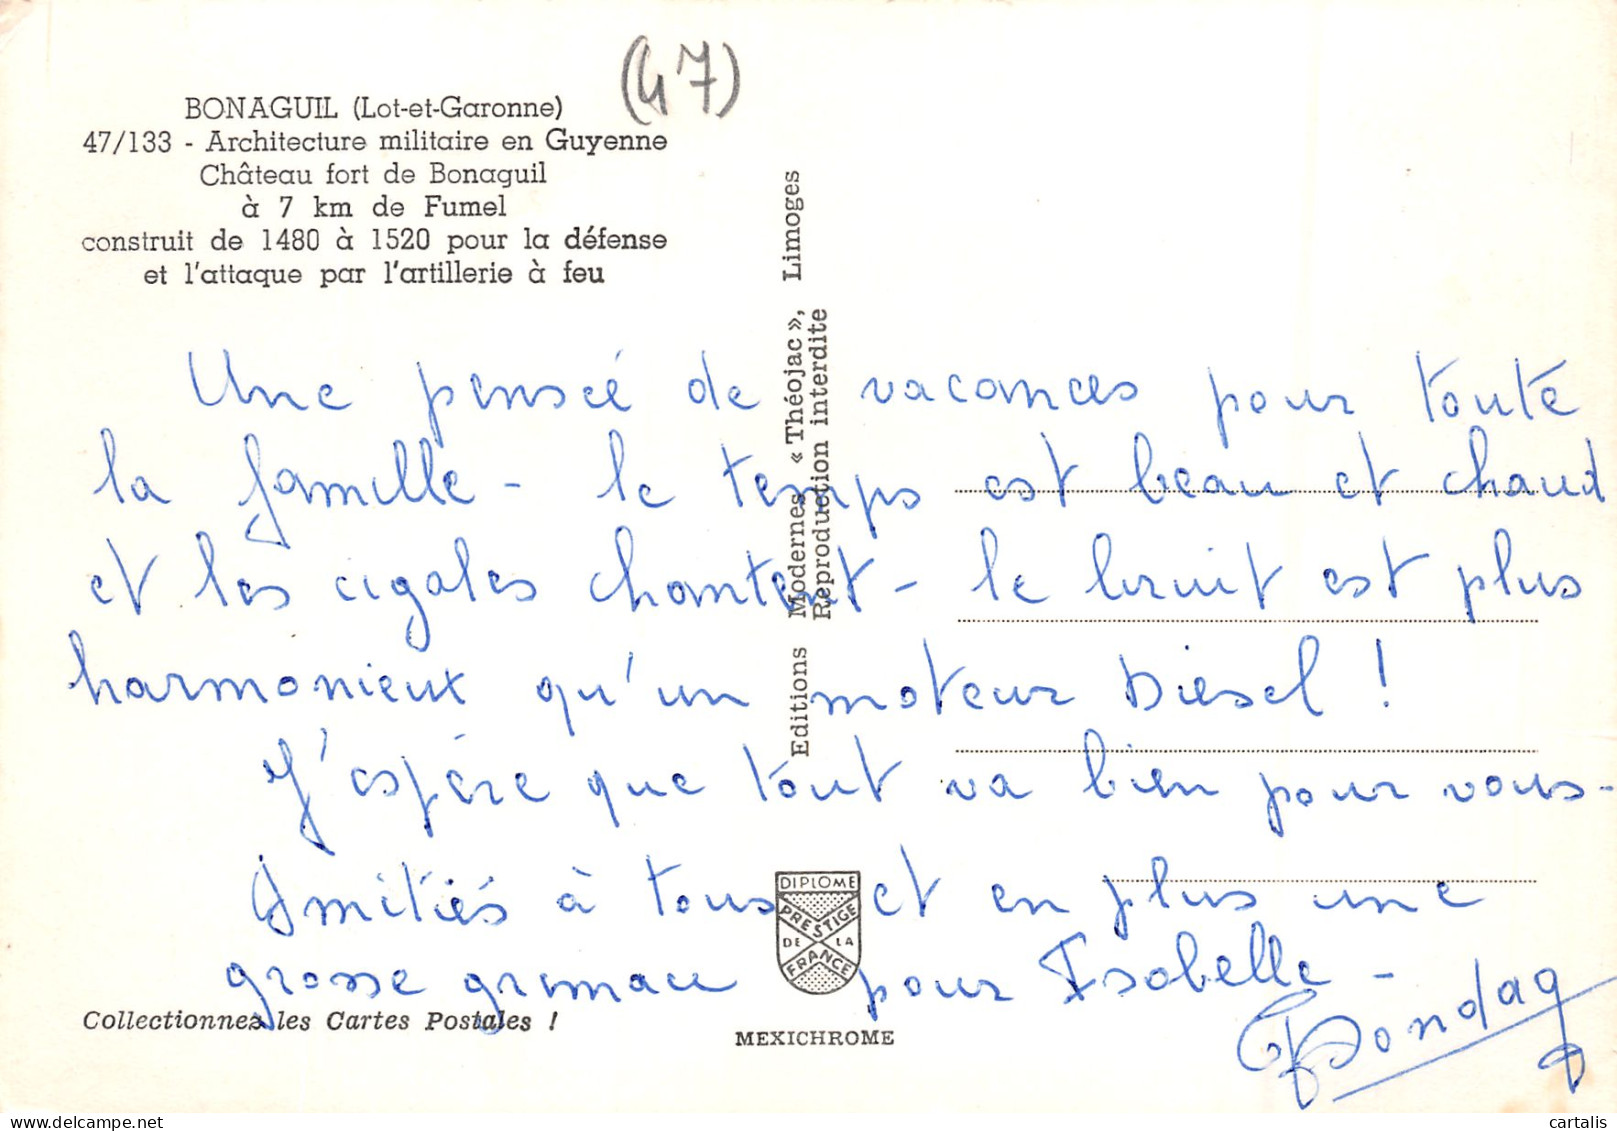 (47)
BONAGUIL (Lot-et-Garonne)
47/133 - Architecture militaire en Guyenne
Château fort de Bonaguil
à 7 km de Fumel
construit de 1480 à 1520 pour la défense
et l'attaque par l'artillerie à feu
Editions Modernes « Théojac », Limoges
Reproduction interdite
Une pensée de vacances pour toute
la famille - le temps est beau et chaud
et les cigales chantent - le bruit est plus
harmonieux qu'un moteur Diesel !
J'espère que tout va bien pour vous -
Amitiés à tous et en plus une
grosse grimace pour Isabelle -
DIPLOME
PRESTIGE
DE LA
FRANCE
Collectionnez les Cartes Postales !
MEXICHROME
cartalis